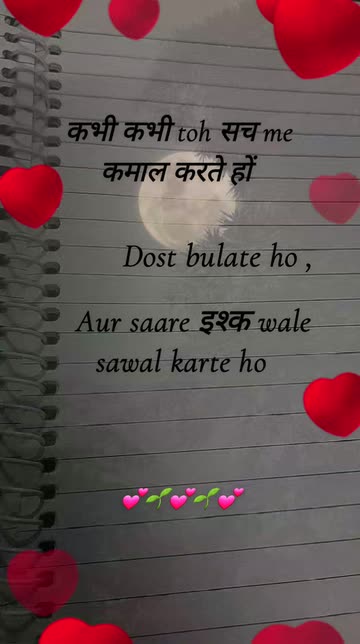 कभी कभी toh सच me
कमाल करते हों
Dost bulate ho ,
Aur saare इश्क wale
sawal karte ho
💕🌱💕🌱💕